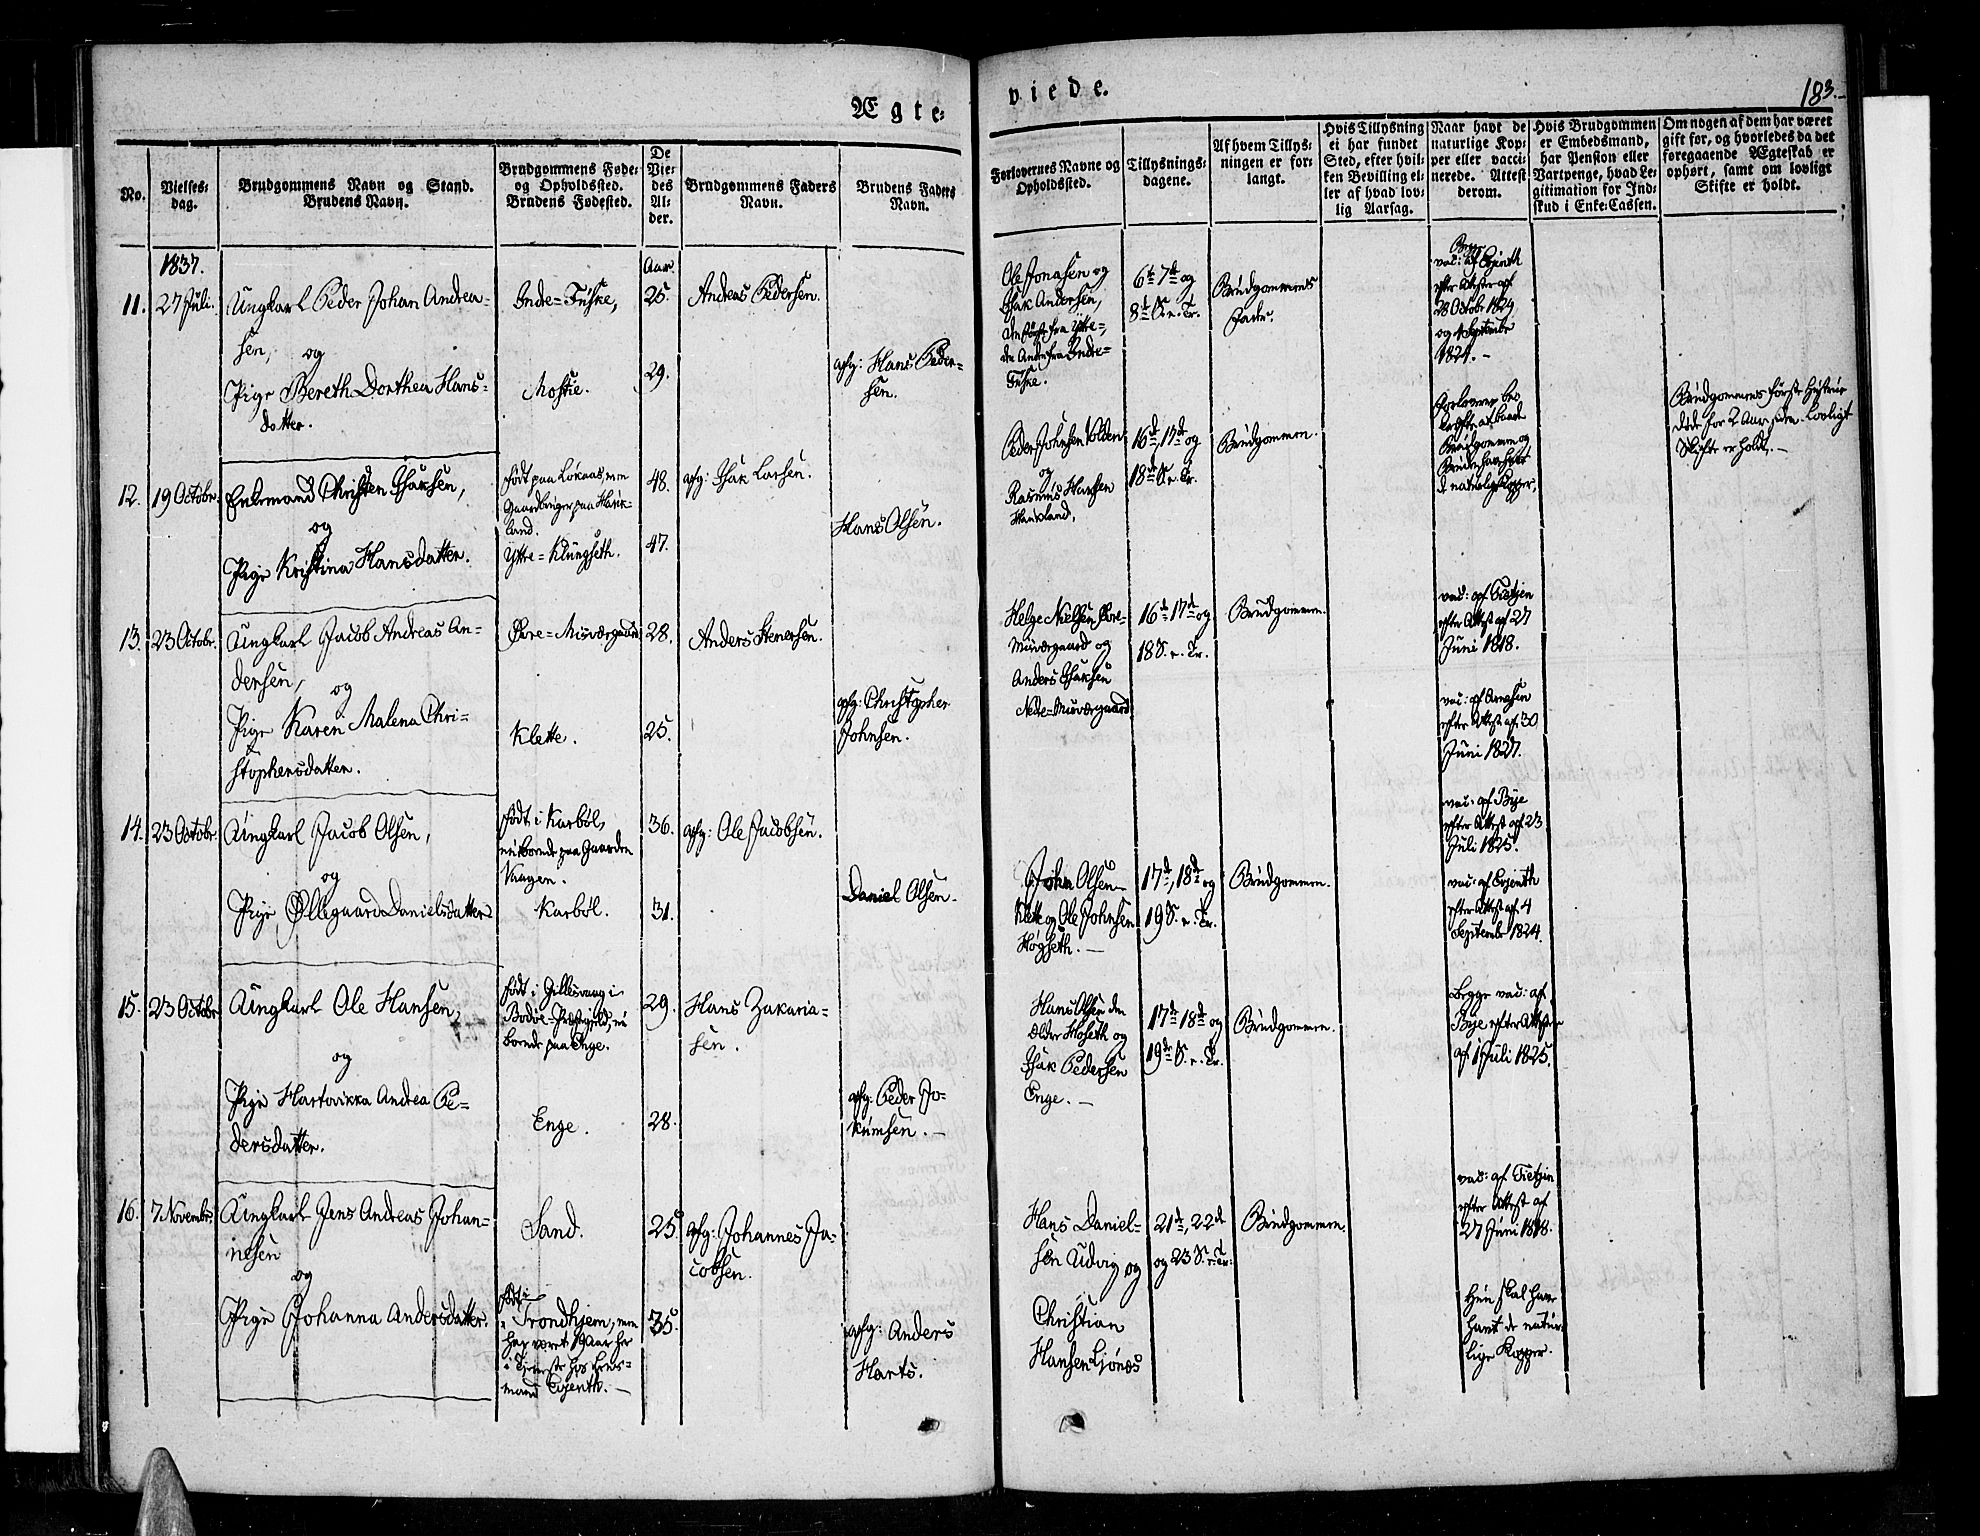 Ægte-
viede.
183.
No.
Vielses-
dag.
Brudgommens Navn og Stand.
Brudens Navn.
Brudgommens Føde-
og Opholdssted.
Brudens Fødested.
De
Vie-
des
Al-
der.
Brudgommens Faders
Navn.
Brudens Faders
Navn.
Forlovernes Navne og
Opholdssted.
Tillysnings-
dagene.
Af hvem Tillys-
ningen er for-
langt.
Hvis Tillysning
ei har fundet
Sted, efter hvil-
ken Bevilling el-
ler af hvad lov-
lig Aarsag.
Naar havt de
naturlige Kop-
per eller vacci-
nerede. Attest
derom.
Hvis Brudgommen
er Embedsmand,
har Pension eller
Vartpenge, hvad Le-
gitimation for Ind-
skud i Enke-Cassen.
Om nogen af dem har været
gift før, og hvorledes da det
foregaaende Ægteskab er
ophørt, samt om lovligt
Skifte er holdt.
1837.
Aar.
11.
27 Juli.
Ungkarl Peder Johan Andrea-
sen,
og
Pige Bereth Dorthea Hans-
datter.
Inde=Fuske,
Mostie.
25.
29.
Andreas Pedersen.
afg: Hans Peder-
sen.
Ole Jonasen og
Isak Andersen,
den første fra Ytre=,
den Anden fra Indre=
Fuske.
6te 7de og
8de S. e. Tr.
Brudgommens
Fader.
vac: af Evjenth
efter Attester af
28 October 1824
og 4 September
1824. -
12.
19 Octobr.
Enkemand Christen Isaksen,
og
Pige Kristina Hansdatter.
født paa Løkaas, men
Gaardbruger paa Hauk-
land.
Ytre=Klungseth.
48.
47.
afg: Isak Larsen.
Hans Olsen.
Peder Johnsen Volden
og
Rasmus Hansen
Haukland,
16de, 17de og
18de S. e. Tr.
Brudgommen.
Forloverne be-
kræfte at baade
Brudgommen og
Bruden have havt
de naturlige Kopper,
Brudgommens første Hustrue
døde for 2 Aar siden. Lovligt
Skifte er holdt. -
13.
23 Octobr.
Ungkarl Jacob Andreas An-
dersen,
og
Pige Karen Malena Chri-
stophersdatter.
Øvre=Misværgaard
Klette.
28.
25.
Anders Stenersen.
afg: Christopher
Johnsen.
Helge Nielsen Øvre-
Misværgaard og
Anders Isaksen
Nedre=Misværgaard
16de 17de og
18 S. e. Tr.
Brudgommen.
vac: af Tietjen
efter Attest af 27
Juni 1818.
vac: af Arnesen
efter Attest af 30
Juni 1827.
14.
23 Octobr.
Ungkarl Jacob Olsen,
og
Pige Øllegaard Danielsdatter
født i Karbøl,
nu boende paa Gaarden
Vaagen.
Karbøl.
36.
31.
afg: Ole Jacobsen.
Daniel Olsen.
John Olsen
Klette og Ole Johnsen
Høgseth. -
17de, 18de og
19 S. e. Tr.
Brudgommen.
vac: af Bye
efter Attest af 23
Juli 1825.
vac: af Evjenth
efter Attest af 4
September 1824.
15.
23 Octobr
Ungkarl Ole Hansen,
og
Pige Hartvikka Andrea Pe-
dersdatter.
født i Gillesvaag i
Bodøe-Præstegjeld, nu
boende paa Enge.
Enge.
29.
28.
Hans Zakaria-
sen.
afg: Peder Jo-
kumsen. -
Hans Olsen den
Ældre Høseth og
Isak Pedersen
Enge. -
17de 18de og
19de S. e. Tr.
Brudgommen.
Begge vac: af
Bye efter Attester
af 1 Juli 1825.
16.
7 Novembr.
Ungkarl Jens Andreas Johan-
nesen
og
Pige Johanna Andersdatter.
Sand.
født i
Trondhjem, men
har været 19 Aar her
i Tjeneste hos Lens-
mand Evjenth. -
25.
35.
afg: Johannes Ja-
cobsen.
afg: Anders
Harts.
Hans Daniel-
sen Udvig og
Christian
Hansen Ljønæs
21de, 22de
og 23 S. e. Tr.
Brudgommen.
vac: af Tietjen
efter Attest af
27 Juni 1818.
Hun skal have
havt de natur-
lige Kopper.